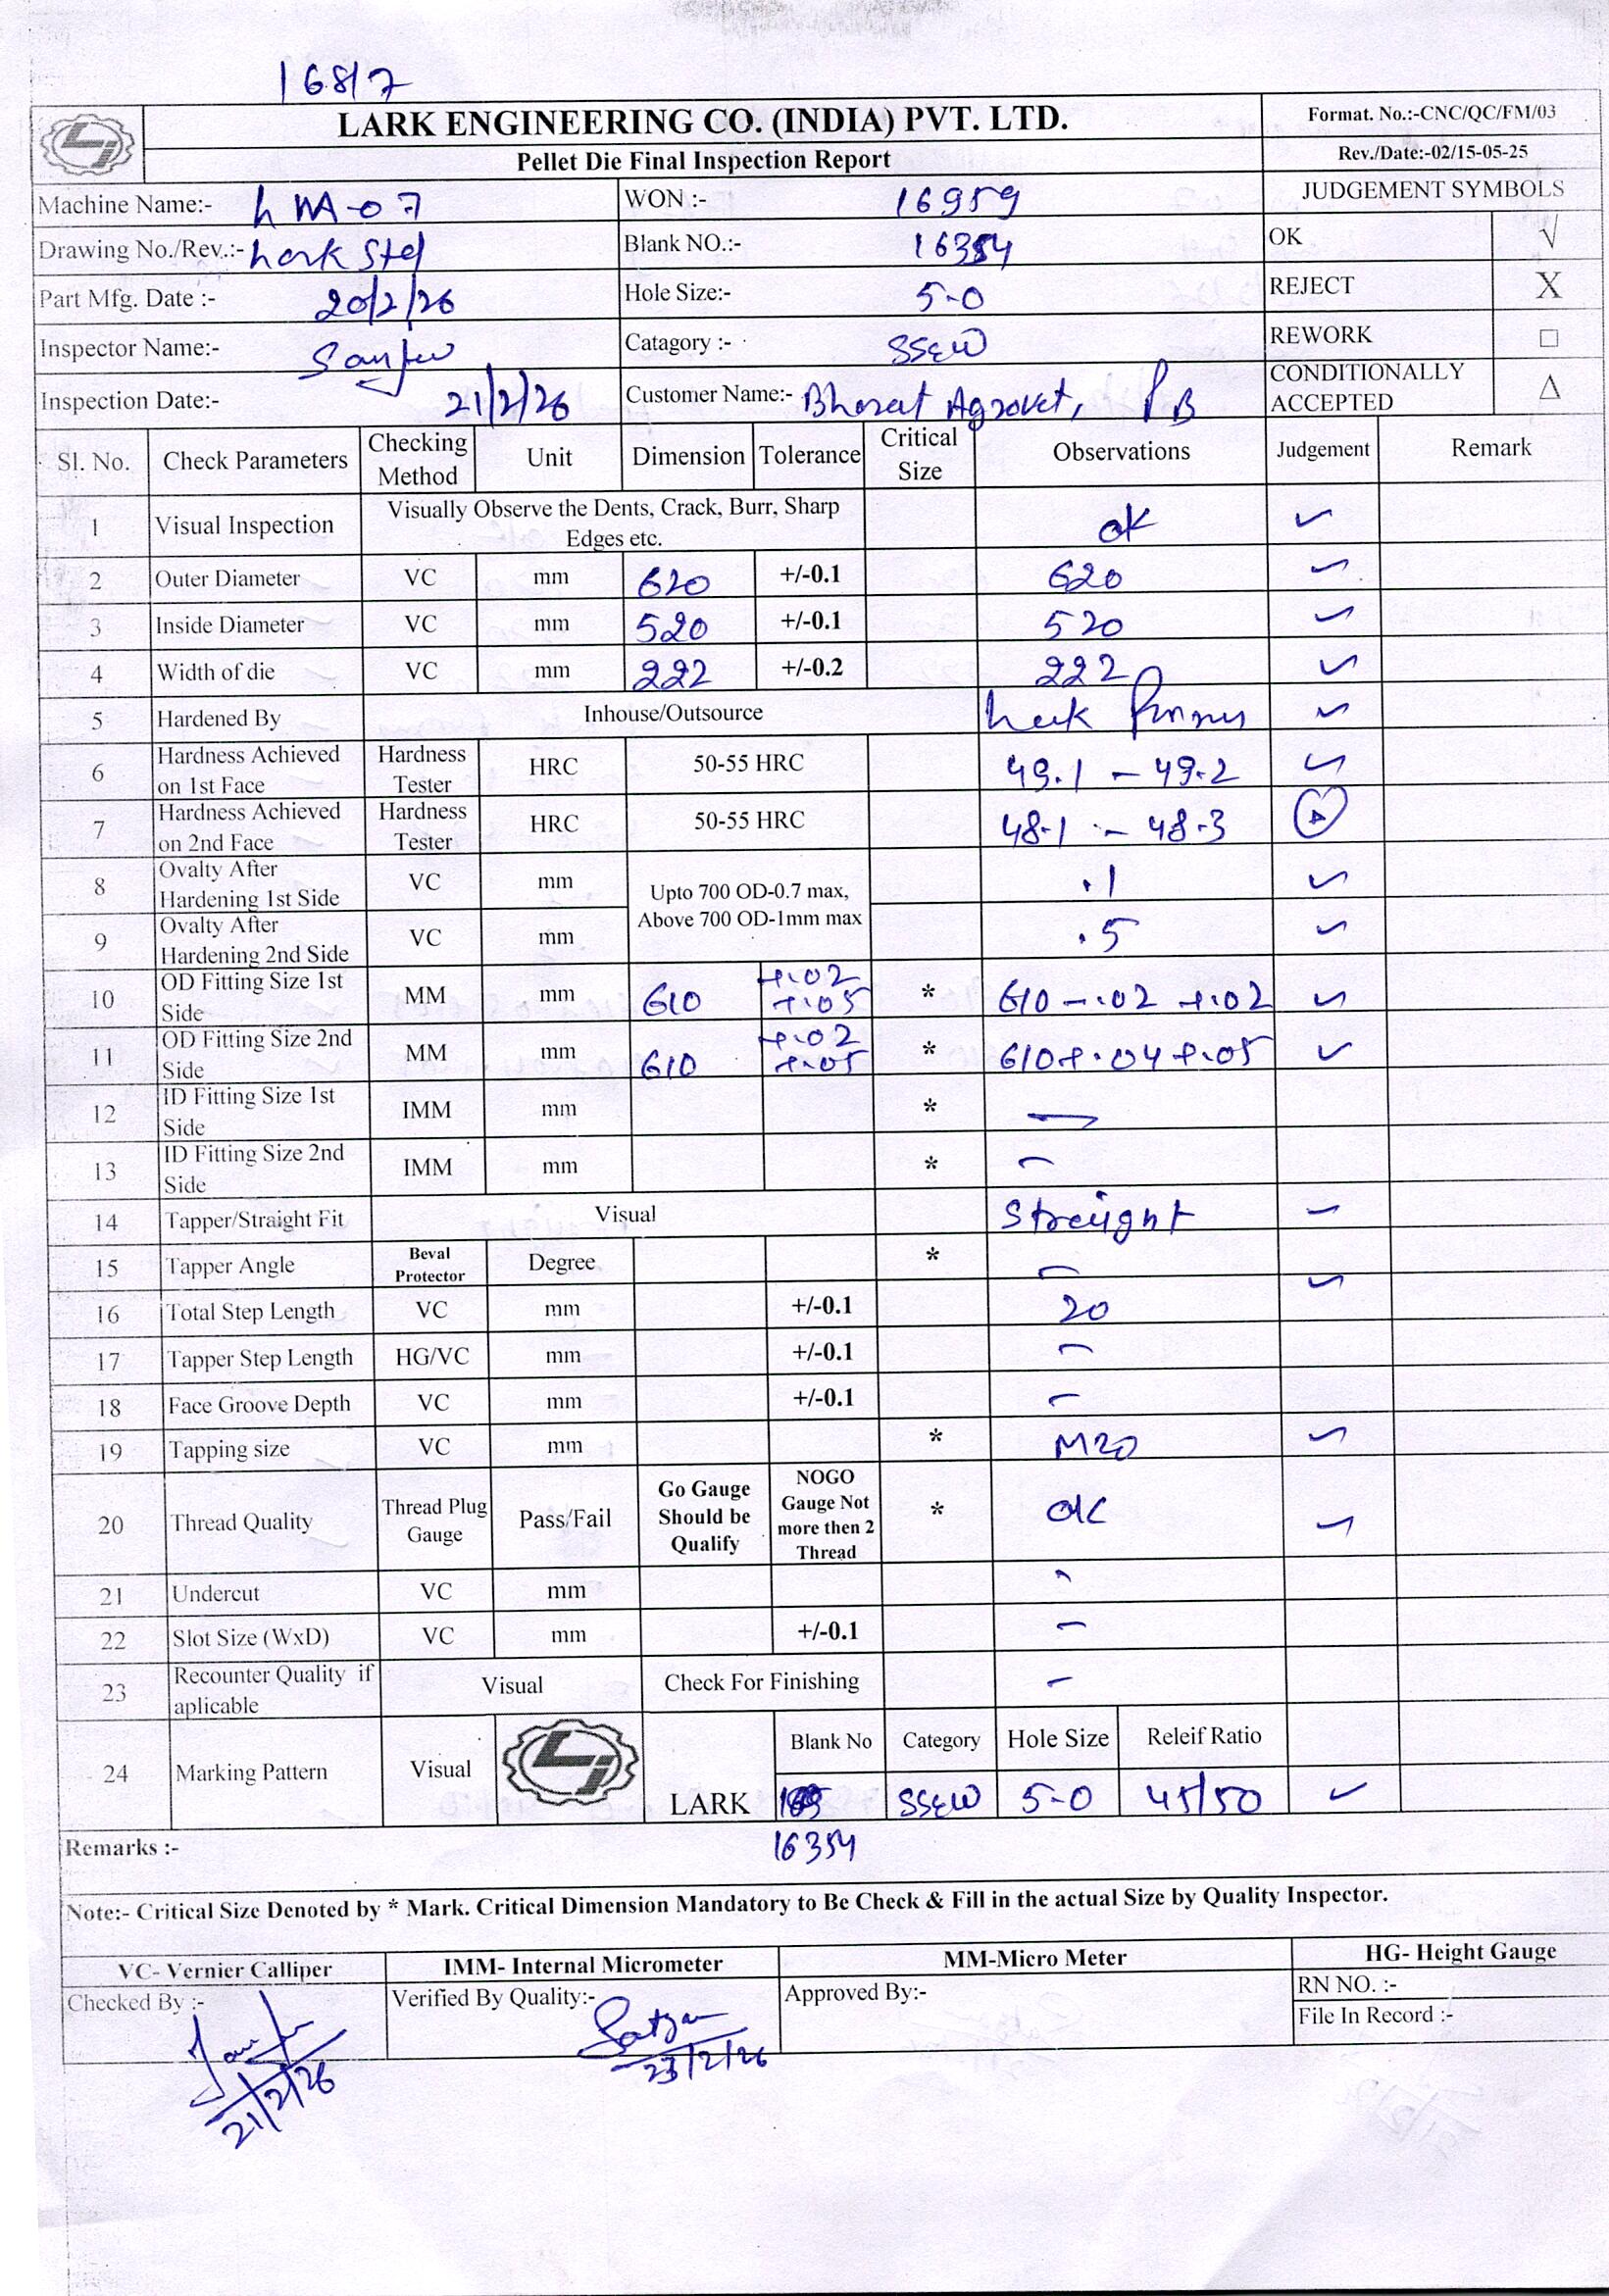 16817
LARK ENGINEERING CO. (INDIA) PVT. LTD.
Format. No.:-CNC/QC/FM/03
Pellet Die Final Inspection Report
Rev./Date:-02/15-05-25
Machine Name:- LMA-07 WON :- 16959 JUDGEMENT SYMBOLS
Drawing No./Rev.:- Lark Std Blank NO.:- 16354 OK √
Part Mfg. Date :- 20/2/26 Hole Size:- 5-0 REJECT X
Inspector Name:- Catagory :- SS&W REWORK □
Inspection Date:- 21/2/26 Customer Name:- Bharat Agrovet, PB CONDITIONALLY ACCEPTED △
Sl. No. Check Parameters Checking Method Unit Dimension Tolerance Critical Size Observations Judgement Remark
1 Visual Inspection Visually Observe the Dents, Crack, Burr, Sharp Edges etc. ok ✓
2 Outer Diameter VC mm 620 +/-0.1 620 ✓
3 Inside Diameter VC mm 520 +/-0.1 520 ✓
4 Width of die VC mm 222 +/-0.2 222 ✓
5 Hardened By Inhouse/Outsource ✓
6 Hardness Achieved on 1st Face Hardness Tester HRC 50-55 HRC 49.1 - 49.2 ✓
7 Hardness Achieved on 2nd Face Hardness Tester HRC 50-55 HRC 48.1 - 48.3 △
8 Ovalty After Hardening 1st Side VC mm Upto 700 OD-0.7 max, Above 700 OD-1mm max .1 ✓
9 Ovalty After Hardening 2nd Side VC mm .5 ✓
10 OD Fitting Size 1st Side MM mm 610 +.02 +.05 * 610 -.02 +.02 ✓
11 OD Fitting Size 2nd Side MM mm 610 +.02 +.05 * 610+.04+.05 ✓
12 ID Fitting Size 1st Side IMM mm * —
13 ID Fitting Size 2nd Side IMM mm * —
14 Tapper/Straight Fit Visual Streight ✓
15 Tapper Angle Beval Protector Degree * —
16 Total Step Length VC mm +/-0.1 20 ✓
17 Tapper Step Length HG/VC mm +/-0.1 —
18 Face Groove Depth VC mm +/-0.1 —
19 Tapping size VC mm * M20 ✓
20 Thread Quality Thread Plug Gauge Pass/Fail Go Gauge Should be Qualify NOGO Gauge Not more then 2 Thread * ok ✓
21 Undercut VC mm —
22 Slot Size (WxD) VC mm +/-0.1 —
23 Recounter Quality if aplicable Visual Check For Finishing —
Blank No Category Hole Size Releif Ratio
24 Marking Pattern Visual LARK SS&W 5-0 45/50 ✓
Remarks :- 16354
Note:- Critical Size Denoted by * Mark. Critical Dimension Mandatory to Be Check & Fill in the actual Size by Quality Inspector.
VC- Vernier Calliper IMM- Internal Micrometer MM-Micro Meter HG- Height Gauge
Checked By :- Verified By Quality:- Approved By:- RN NO. :-
File In Record :-
21/2/26 23/2/26